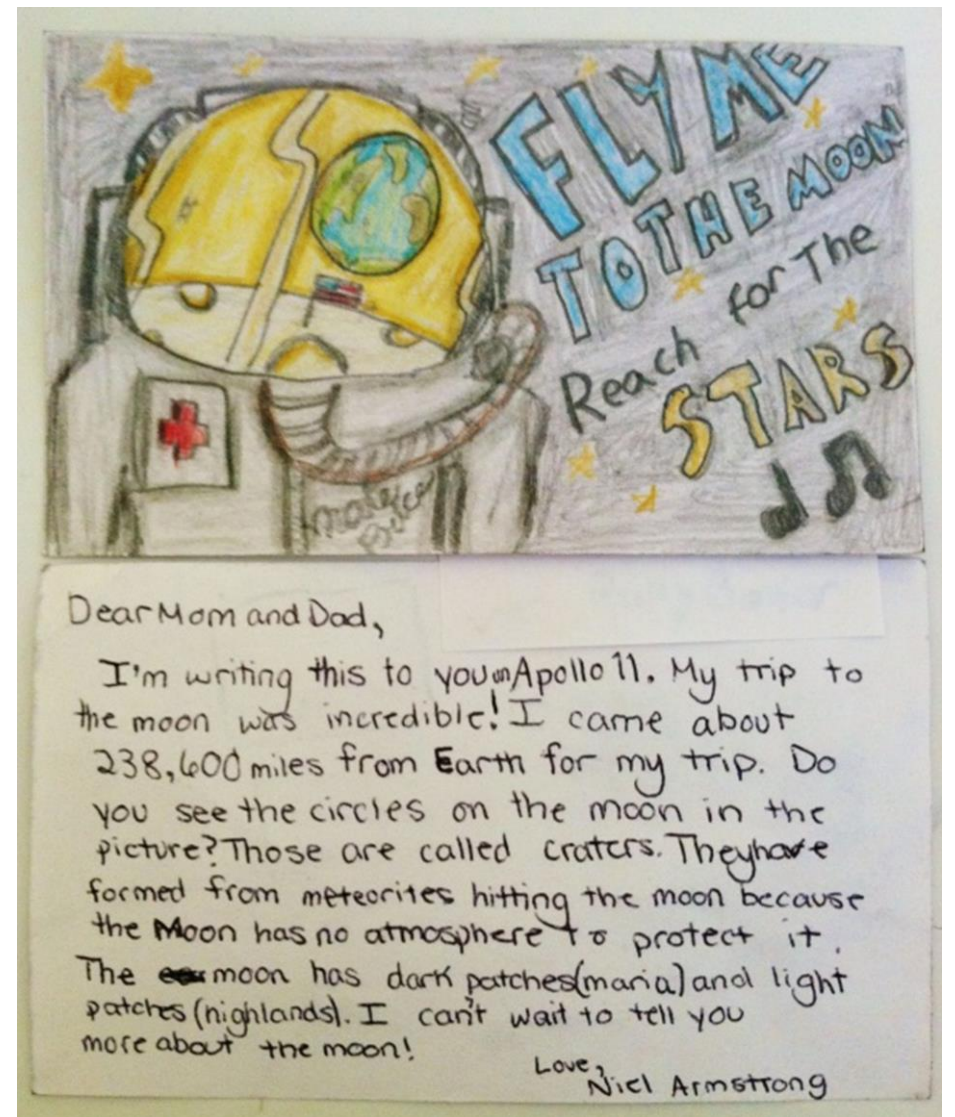 FLY ME
TO THE MOON
Reach for The
STARS
Dear Mom and Dad,
I'm writing this to you on Apollo 11. My trip to
the moon was incredible! I came about
238,600 miles from Earth for my trip. Do
you see the circles on the moon in the
picture? Those are called craters. They have
formed from meteorites hitting the moon because
the Moon has no atmosphere to protect it.
The moon has dark patches (maria) and light
patches (highlands). I can't wait to tell you
more about the moon!
Love,
Niel Armstrong